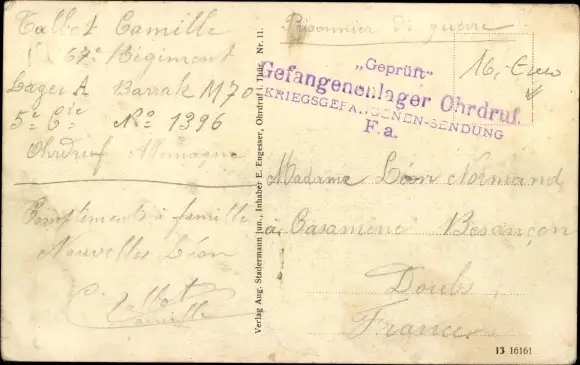 Talbot Camille
67e Régiment
Lager A Barrak M 70
5e Cie No 1396
Ohrdruf Allemagne
Compliments à famille
Nouvelles Léon
C. Talbot
Camille
Verlag Aug. Stadermann jun., Inhaber E. Engesser, Ohrdruf i. Thür. Nr. 11.
Prisonnier de guerre
16,- Euro
„Geprüft“
Gefangenenlager Ohrdruf.
KRIEGSGEFANGENEN-SENDUNG
F.a.
Madame Léon Normand
à Casamène Besançon
Doubs
France
13 16161